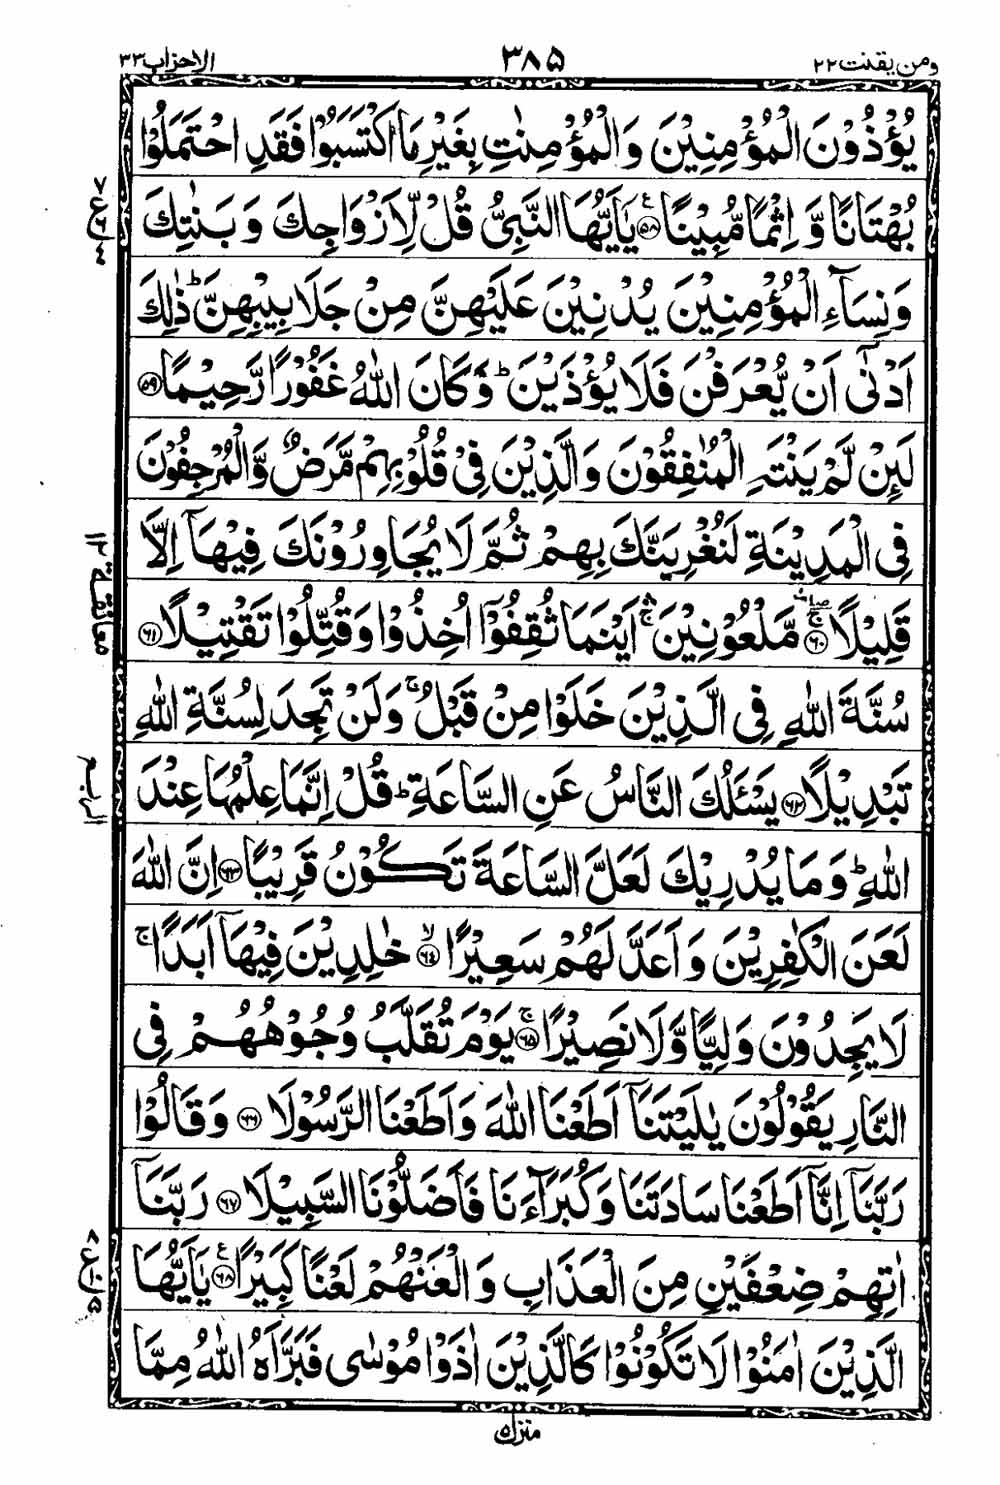 ومن يقنت ٢٢
٣٨٥
الاحزاب ٣٣
يُؤْذُوْنَ الْمُؤْمِنِيْنَ وَالْمُؤْمِنٰتِ بِغَيْرِ مَا اكْتَسَبُوْا فَقَدِ احْتَمَلُوْا
بُهْتَانًا وَّ اِثْمًا مُّبِيْنًا ﴿۵۸﴾ يٰۤاَيُّهَا النَّبِىُّ قُلْ لِّاَزْوَاجِكَ وَ بَنٰتِكَ
وَنِسَآءِ الْمُؤْمِنِيْنَ يُدْنِيْنَ عَلَيْهِنَّ مِنْ جَلَابِيْبِهِنَّ ؕ ذٰلِكَ
اَدْنٰٓى اَنْ يُّعْرَفْنَ فَلَا يُؤْذَيْنَ ؕ وَكَانَ اللّٰهُ غَفُوْرًا رَّحِيْمًا ﴿۵۹﴾
لَئِنْ لَّمْ يَنْتَهِ الْمُنٰفِقُوْنَ وَالَّذِيْنَ فِىْ قُلُوْبِهِمْ مَّرَضٌ وَّالْمُرْجِفُوْنَ
فِى الْمَدِيْنَةِ لَنُغْرِيَنَّكَ بِهِمْ ثُمَّ لَا يُجَاوِرُوْنَكَ فِيْهَاۤ اِلَّا
قَلِيْلًا ﴿۶۰﴾ مَّلْعُوْنِيْنَ ۛۚ اَيْنَمَا ثُقِفُوْۤا اُخِذُوْا وَقُتِّلُوْا تَقْتِيْلًا ﴿۶۱﴾
سُنَّةَ اللّٰهِ فِى الَّذِيْنَ خَلَوْا مِنْ قَبْلُ ۚ وَلَنْ تَجِدَ لِسُنَّةِ اللّٰهِ
تَبْدِيْلًا ﴿۶۲﴾ يَسْئَلُكَ النَّاسُ عَنِ السَّاعَةِ ؕ قُلْ اِنَّمَا عِلْمُهَا عِنْدَ
اللّٰهِ ؕ وَمَا يُدْرِيْكَ لَعَلَّ السَّاعَةَ تَكُوْنُ قَرِيْبًا ﴿۶۳﴾ اِنَّ اللّٰهَ
لَعَنَ الْكٰفِرِيْنَ وَاَعَدَّ لَهُمْ سَعِيْرًا ۙ﴿۶۴﴾ خٰلِدِيْنَ فِيْهَاۤ اَبَدًا ۚ
لَا يَجِدُوْنَ وَلِيًّا وَّلَا نَصِيْرًا ۚ﴿۶۵﴾ يَوْمَ تُقَلَّبُ وُجُوْهُهُمْ فِى
النَّارِ يَقُوْلُوْنَ يٰلَيْتَنَاۤ اَطَعْنَا اللّٰهَ وَاَطَعْنَا الرَّسُوْلَا ﴿۶۶﴾ وَقَالُوْا
رَبَّنَاۤ اِنَّاۤ اَطَعْنَا سَادَتَنَا وَكُبَرَآءَنَا فَاَضَلُّوْنَا السَّبِيْلَا ﴿۶۷﴾ رَبَّنَاۤ
اٰتِهِمْ ضِعْفَيْنِ مِنَ الْعَذَابِ وَالْعَنْهُمْ لَعْنًا كَبِيْرًا ﴿۶۸﴾ يٰۤاَيُّهَا
الَّذِيْنَ اٰمَنُوْا لَا تَكُوْنُوْا كَالَّذِيْنَ اٰذَوْا مُوْسٰى فَبَرَّاَهُ اللّٰهُ مِمَّا
منزل ۵
معانقة ١٢